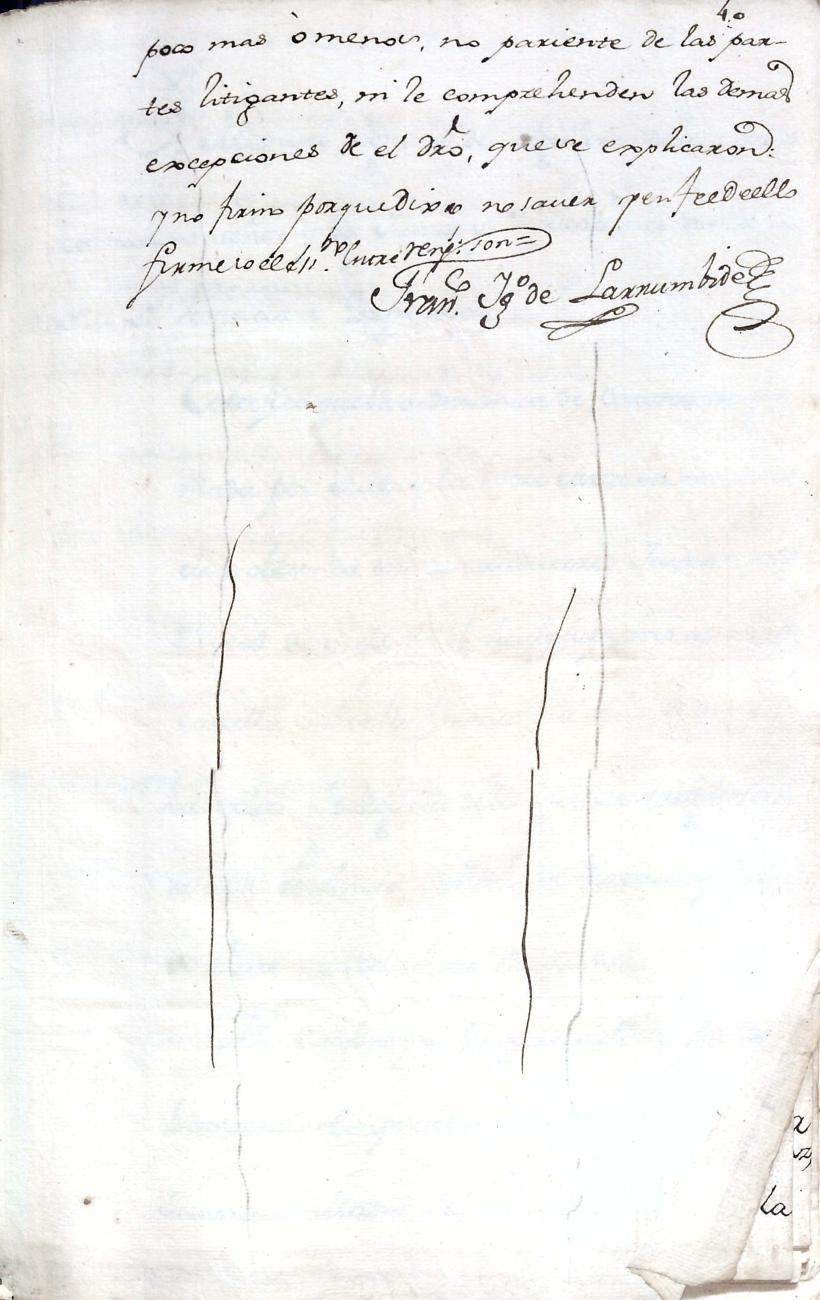 40
poco mas ò menos, no pariente de las par-
tes litigantes, ni le comprehenden las demas
excepciones de el dro, que se explicaron:
y no firmo porque dixo no saver, y en fee de ello
firme io el ss.no Entre reng.s son=
Fran.co Ig.o de Larrumbide
la